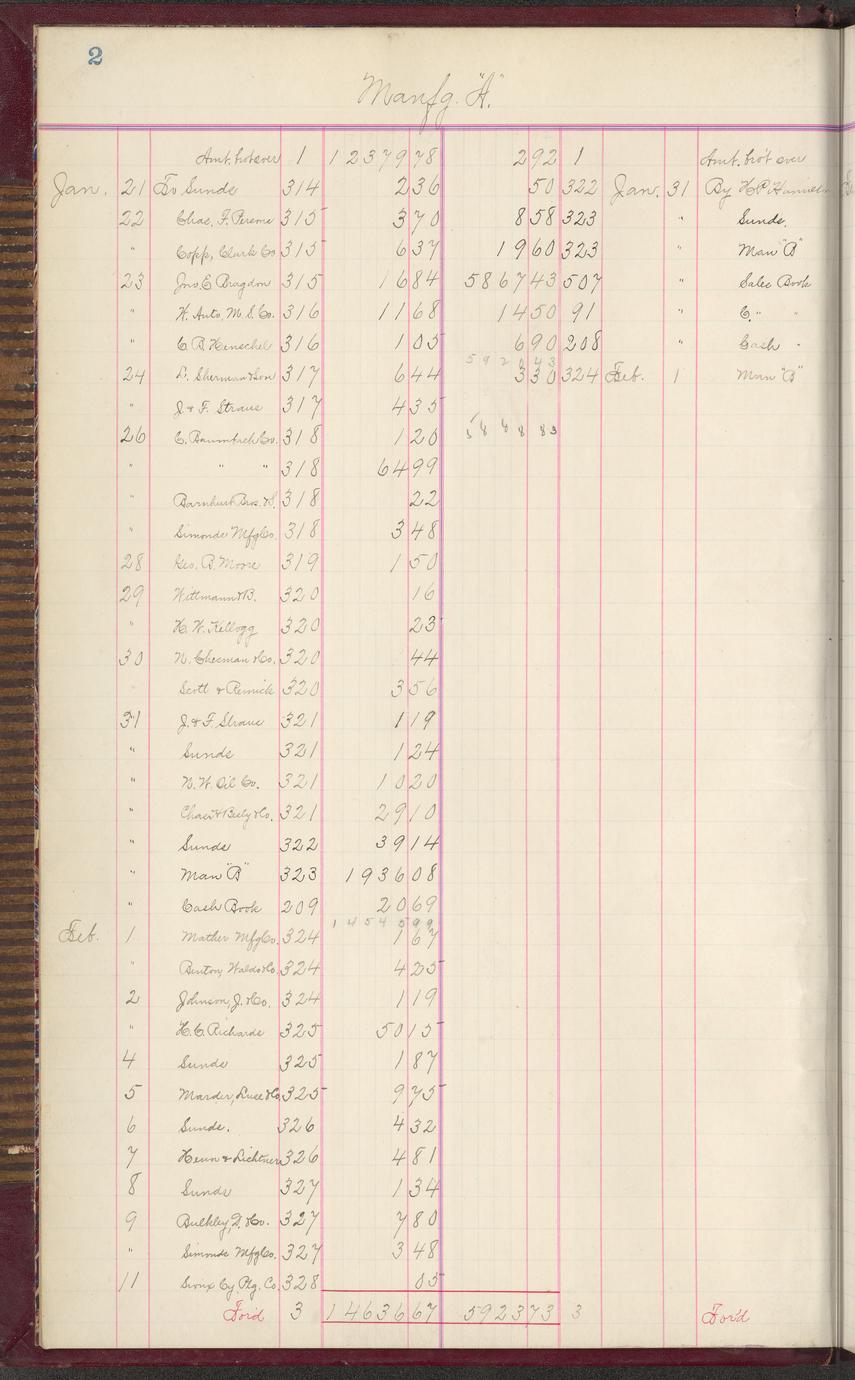 2
Manfg. "A."
Amt. brot over 1 12379 78 2 92 1 Amt. bro't over
Jan. 21 To Sunds 314 2 36 50 322 Jan. 31 By H.P.
22 Chas. F. Persons 315 3 70 8 58 323 " Sunds.
" Copp, Clark Co 315 6 37 19 60 323 " Man "B"
23 Jno. E Bragdon 315 16 84 5867 43 507 " Sales Book
" W. Auto. M. S. Co. 316 11 68 14 50 91 " C. " "
" C. B. Henschel 316 1 05 6 90 208 " Cash "
5920 43
24 L. Sherman & Son 317 6 44 3 30 324 Feb. 1 Man "B"
" J. & F. Straus 317 4 35
26 C. Baumbach Co. 318 1 20 58 88 83
" " " 318 64 99
" Barnhart Bros. & S. 318 22
" Simonds Mfg Co. 318 3 48
28 Geo. B. Moore 319 1 50
29 Wittmann & B. 320 16
" H. W. Kellogg 320 23
30 N. Chesman & Co. 320 44
" Scott & Remick 320 3 56
31 J. & F. Straus 321 1 19
" Sunds 321 1 24
" N. W. Oil Co. 321 10 20
" 321 29 10
" Sunds 322 39 14
" Man "B" 323 1936 08
" Cash Book 209 20 69
14545 99
Feb. 1 Mather Mfg Co. 324 1 67
" Benton, Waldo & Co. 324 4 25
2 Johnson, J. & Co. 324 1 19
" H. C. Richards 325 50 15
4 Sunds 325 1 87
5 Marder, Luse & Co 325 9 75
6 Sunds. 326 4 32
7 Henn & 326 4 81
8 Sunds 327 1 34
9 Bulkley, D. & Co. 327 7 80
" Simonds Mfg Co. 327 3 48
11 Sioux Cy. Ptg. Co. 328 05
For'd 3 14636 67 5923 73 3 For'd